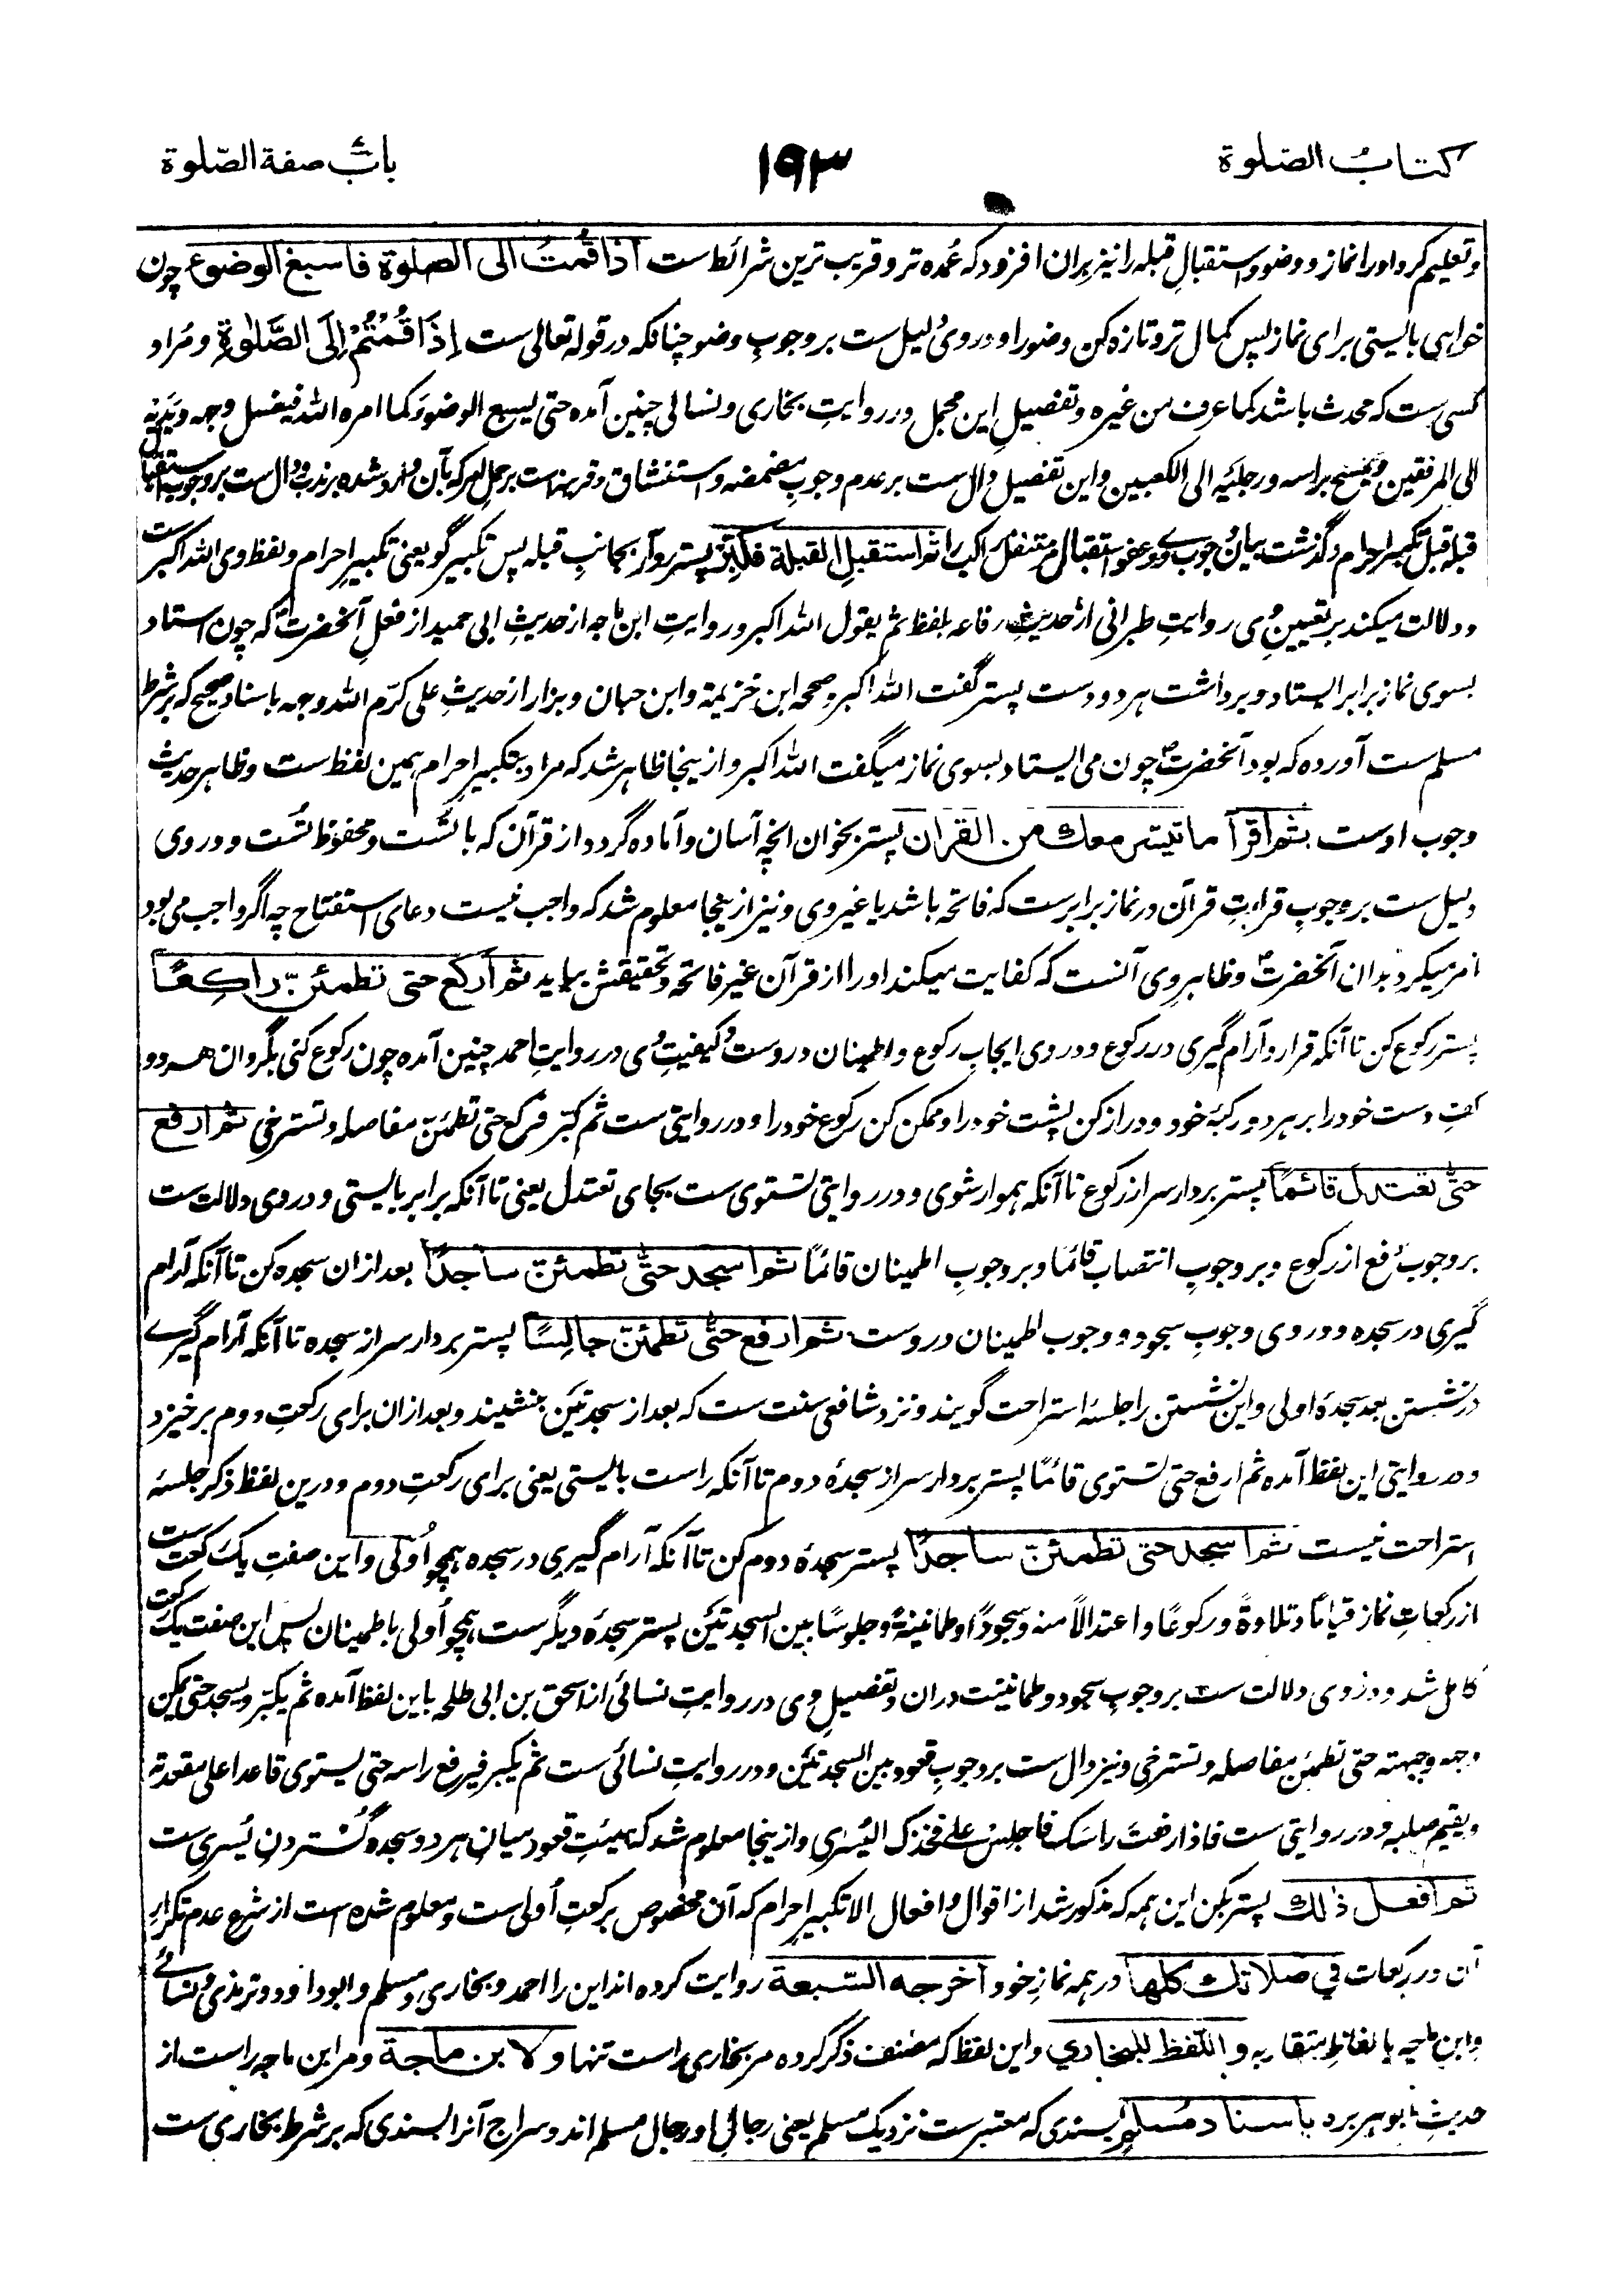 کتاب الصّلوة
۱۹۳
باب صفة الصّلوة
و تعلیم کرد او را نماز و وضو و استقبالِ قبله را نیز بران افزود که عُمده تر و قریب ترین شرائط ست اذا قُمتُ الی الصلوة فاسبغ الوضوء چون
خواهی بایستی برای نماز پس کمال تر و تازه کن وضو را و در وی دلیل ست بر وجوبِ وضو چنانکه در قوله تعالی ست اِذَا قُمْتُمْ اِلَى الصَّلٰوةِ و مُراد
کسی ست که محدث باشد کما عرف من غیره و تفصیلِ این مجمل در روایتِ بخاری و نسائی چنین آمده حتی یسبع الوضوءَ کما امره الله فیغسل وجهه و یَدَیْه
الی المرفقین و یمسح براسه و رجلیْه الی الکعبین و این تفصیل دال ست بر عدم وجوبِ مضمضه و استنشاق و قرینه است بر حمل امر که بآن وارد شده بر ندب و دال ست بر وجوبِ استقبال
قبله قبل تکبیر احرام و گذشت بیانُ وجوب وے و عفو استقبال مر متنفل راکب را ثم استقبلِ القبلة فکبّر پستر رو آر بجانبِ قبله پس تکبیر گو یعنی تکبیرِ احرام و لفظ وی الله اکبر ست
و دلالت میکند بر تعیینِ وی روایتِ طبرانی از حدیثِ رفاعه بلفظ ثم یقول الله اکبر و روایتِ ابن ماجه از حدیثِ ابی حمید از فعلِ آنحضرت که چون استاد
بسوی نماز برابر ایستاد و برداشت هر دو دست پستر گفت الله اکبر و صححه ابن خزیمة و ابن حبان و بزار از حدیثِ علی کرّم الله وجهه باسناد صحیح که بر شرط
مسلم ست آورده که بود آنحضرت ص چون می ایستاد بسوی نماز میگفت الله اکبر و ازینجا ظاهر شد که مراد بتکبیرِ احرام همین لفظ ست و ظاهرِ حدیث
وجوب اوست ثم اقرأ ما تیسّر معك من القران پستر بخوان انچه آسان و آماده گردد از قرآن که با تُست و محفوظ تُست و در وی
دلیل ست بر وجوبِ قراءتِ قرآن در نماز برابرست که فاتحه باشد یا غیر وی و نیز ازینجا معلوم شد که واجب نیست دعای استفتاح چه اگر واجب می بود
امر میکرد بدان آنحضرت ص و ظاهرِ وی آنست که کفایت میکند او را از قرآن غیر فاتحه و تحقیقش بیاید ثم ارکع حتی تطمئنّ راکِعًا
پستر رکوع کن تا آنکه قرار و آرام گیری در رکوع و در وی ایجابِ رکوع و اطمینان در وست و کیفیتِ وی در روایتِ احمد چنین آمده چون رکوع کنی بگردان هر دو
کفِ دست خود را بر هر دو رکبۀ خود و دراز کن پشت خود را و ممکن کن رکوع خود را و در روایتی ست ثم کبّر فرکع حتی تطمئنّ مفاصله و تسترخی ثم ارفع
حتّی تعتدل قائمًا پستر بردار سر از رکوع تا آنکه هموار شوی و در روایتی تستوی ست بجای تعتدل یعنی تا آنکه برابر بایستی و در وی دلالت ست
بر وجوبِ رفع از رکوع و بر وجوبِ انتصاب قائمًا و بر وجوبِ اطمینان قائمًا ثم اسجد حتّی تطمئنّ ساجدًا بعد ازان سجده کن تا آنکه آرام
گیری در سجده و در وی وجوبِ سجود و وجوب اطمینان در وست ثم ارفع حتّی تطمئنّ جالِسًا پستر بردار سر از سجده تا آنکه آرام گیرے
در نشستن بعد سجدۀ اولی و این نشستن را جلسۀ استراحت گویند و نزد شافعی سنت ست که بعد از سجدتَین بنشیند و بعد ازان برای رکعتِ دوم برخیزد
و در روایتی این لفظ آمده ثم ارفع حتی تستوی قائمًا پستر بردار سر از سجدۀ دوم تا آنکه راست بایستی یعنی برای رکعتِ دوم و درین لفظ ذکر جلسۀ
استراحت نیست ثم اسجد حتی تطمئنّ ساجدًا پستر سجدۀ دوم کن تا آنکه آرام گیری در سجده همچو اُولی و این صفتِ یک رکعت ست
از رکعاتِ نماز قیامًا و تلاوةً و رکوعًا و اعتدالاً منه و سجودًا و طمانینةً و جلوسًا بین السجدتَین پستر سجدۀ دیگرست همچو اُولی باطمینان پس این صفت یک رکعت
کامل شد و در وی دلالت ست بر وجوبِ سجود و طمانینت دران و تفصیلِ وی در روایتِ نسائی از اسحق بن ابی طلحه باین لفظ آمده ثم یکبّر و یسجد حتی یمکن
وجهه و جبهته حتی تطمئن مفاصله و تسترخی و نیز دال ست بر وجوبِ قعود بین السجدتَین و در روایتِ نسائی ست ثم یکبر فیرفع راسه حتی یستوی قاعدا علی مقعدته
و یقیم صلبه و در روایتی ست فاذا رفعتَ راسَک فاجلِسْ علی فخذک الیُسری و ازینجا معلوم شد که هیئتِ قعود میانِ هر دو سجده گُستردنِ یُسری ست
ثم افعل ذٰلك پستر بکن این همه که مذکور شد از اقوال و افعال الا تکبیر احرام که آن مخصوص برکعتِ اُولی ست و معلوم شده است از شرع عدم تکرارِ
آن در رکعات فی صلاتك کلها در همه نمازِ خود اخرجه السّبعة روایت کرده اند این را احمد و بخاری و مسلم و ابوداود و ترمذی و نسائے
و ابن ماجه بالفاظِ متقاربه و اللّفظ للبخاري و این لفظ که مصنف ذکر کرده مر بخاری راست تنها و لابن ماجة و مر ابن ماجه راست از
حدیثِ ابو هریره باسناد مُسلمٍ بسندی که معتبرست نزدیک مسلم یعنی رجالِ او رجال مسلم اند و سراج آنرا بسندی که بر شرط بخاری ست